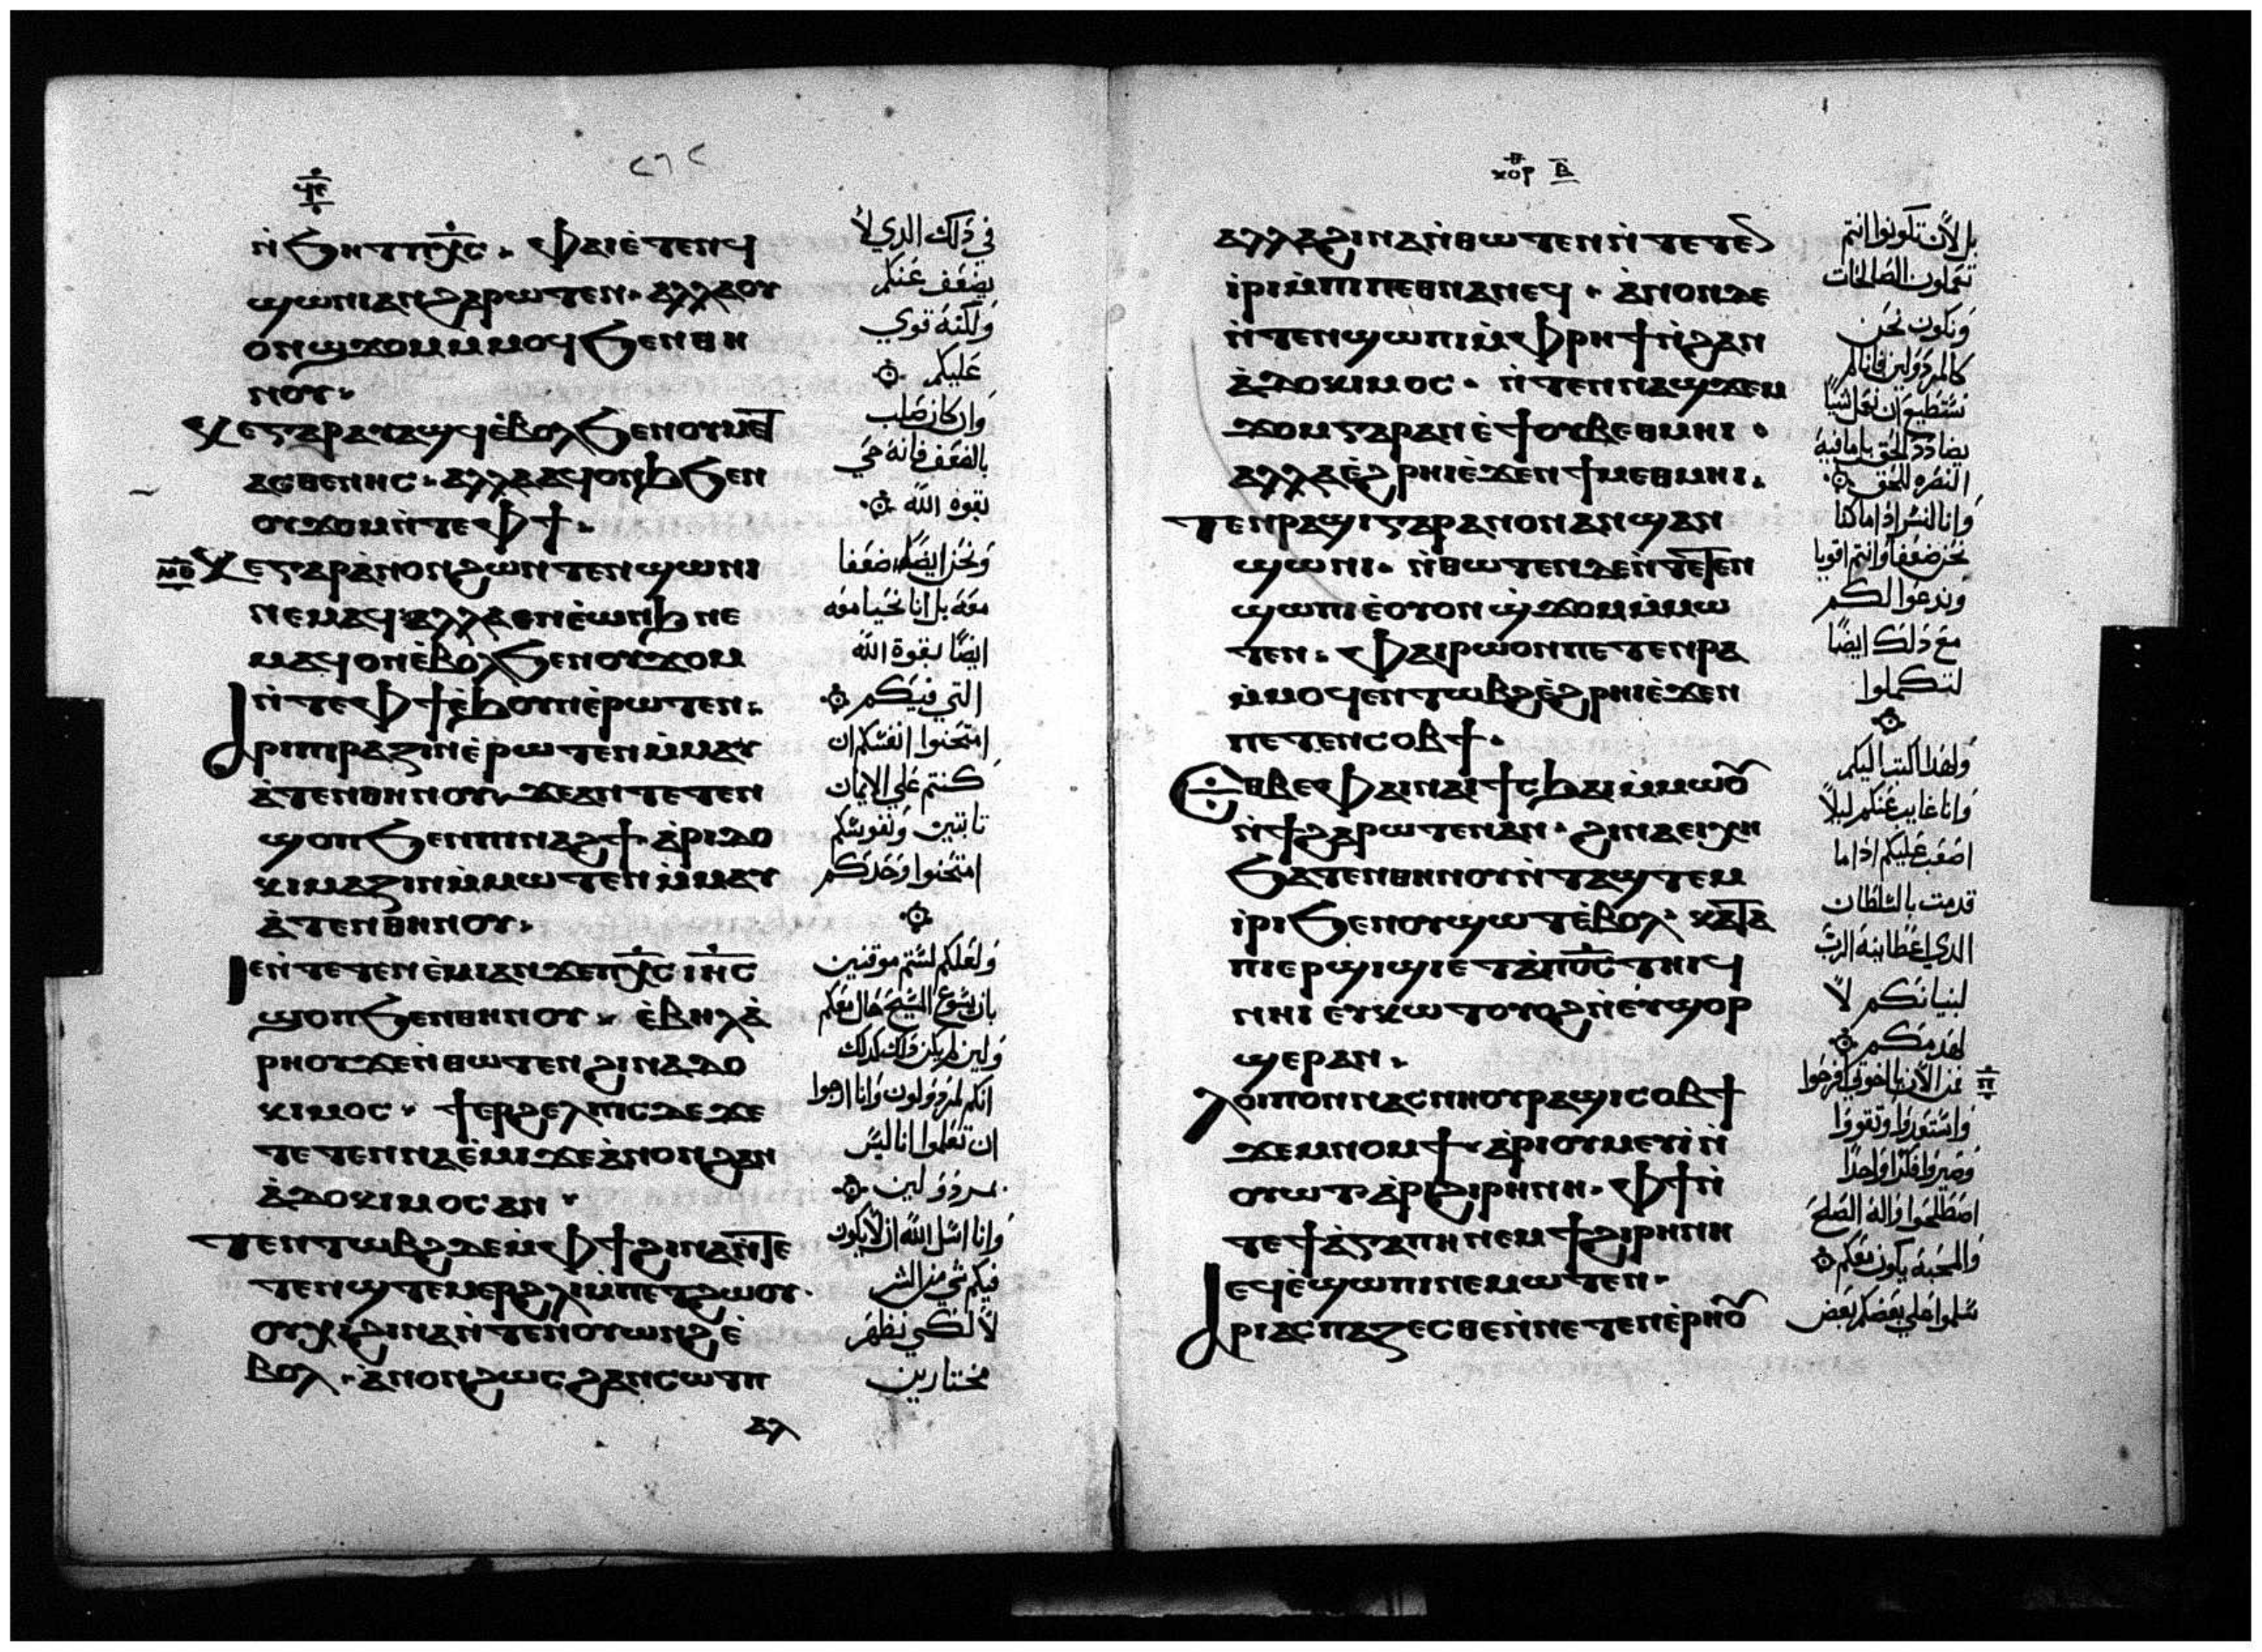 ϥⲉ
ⲛ̀ϧⲏⲧ ⲡⲭ̅ⲥ̅. ⲫⲁⲓ ⲉ̀ⲧⲉⲛϥ
ϣⲱⲛⲓ ⲁⲛ ϩⲁⲣⲱⲧⲉⲛ. ⲁⲗⲗⲁ ⲟⲩ
ⲟⲛ ϣϫⲟⲙ ⲙ̀ⲙⲟϥ ϧⲉⲛ ⲑⲏ
ⲛⲟⲩ.
ⲕⲉ ⲅⲁⲣ ⲁⲩⲁϣϥ ⲉ̀ⲃⲟⲗ ϧⲉⲛ ⲟⲩⲙⲉⲧ
ⲁⲥⲑⲉⲛⲏⲥ. ⲁⲗⲗⲁ ϥⲟⲛϧ ϧⲉⲛ
ⲟⲩϫⲟⲙ ⲛ̀ⲧⲉ ⲫϯ.
ⲕⲉ ⲅⲁⲣ ⲁ̀ⲛⲟⲛ ϩⲱⲛ ⲧⲉⲛϣⲱⲛⲓ
ⲛⲉⲙⲁϥ ⲁⲗⲗⲁ ⲉⲛⲉ̀ⲱⲛϧ ⲛⲉ
ⲙⲁϥ ⲟⲛ ⲉ̀ⲃⲟⲗ ϧⲉⲛ ⲟⲩϫⲟⲙ
ⲛ̀ⲧⲉ ⲫϯ ⲉ̀ϧⲟⲩⲛ ⲉ̀ⲣⲱⲧⲉⲛ.
ⲁⲣⲓⲡⲓⲣⲁⲍⲓⲛ ⲉ̀ⲣⲱⲧⲉⲛ ⲙ̀ⲙⲁⲩ
ⲁ̀ⲧⲉⲛ ⲑⲏⲛⲟⲩ ϫⲉ ⲁⲛ ⲧⲉⲧⲉⲛ
ϣⲟⲡ ϧⲉⲛ ⲡⲓⲛⲁϩϯ. ⲁ̀ⲣⲓⲇⲟ
ⲕⲓⲙⲁⲍⲓⲛ ⲙ̀ⲙⲱⲧⲉⲛ ⲙ̀ⲙⲁⲩ
ⲁ̀ⲧⲉⲛ ⲑⲏⲛⲟⲩ.
ⲓⲉ ⲛ̀ⲧⲉⲧⲉⲛⲉ̀ⲙⲓ ⲁⲛ ϫⲉ ⲡⲭ̅ⲥ̅ ⲓⲏ̅ⲥ̅
ϣⲟⲡ ϧⲉⲛ ⲑⲏⲛⲟⲩ. ⲉ̀ⲃⲏⲗ ⲁ̀
ⲣⲏⲟⲩ ϫⲉ ⲛ̀ⲑⲱⲧⲉⲛ ϩⲓⲛⲁⲇⲟ
ⲕⲓⲙⲟⲥ. ϯⲉⲣϩⲉⲗⲡⲓⲥ ⲇⲉ ϫⲉ
ⲧⲉⲧⲉⲛⲛⲁⲉ̀ⲙⲓ ϫⲉ ⲁ̀ⲛⲟⲛ ϩⲁⲛ
ⲁ̀ⲇⲟⲕⲓⲙⲟⲥ ⲁⲛ.
ⲧⲉⲛⲧⲱⲃϩ ⲇⲉ ⲙ̀ⲫϯ ϩⲓⲛⲁ ⲛ̀ⲧⲉ
ⲧⲉⲛϣⲧⲉⲙⲉⲣϩⲗⲓ ⲙ̀ⲡⲉⲧϩⲱⲟⲩ.
ⲟⲩⲭ ϩⲓⲛⲁ ⲛ̀ⲧⲉⲛⲟⲩⲱⲛϩ ⲉ̀
ⲃⲟⲗ. ⲁ̀ⲛⲟⲛ ϩⲱⲥ ϩⲁⲛⲥⲱⲧⲡ
ⲁⲗ
٢٦٢
في ذلك الدي لا
يضعف عنكم
ولكنه قوي
عليكم
وان كان صلب
بالضعف فانه حي
بقوه الله
ونحن ايضا ضعفا
معه بل انا نحيا معه
ايضا بقوة الله
التي فيكم
امتحنوا انفسكم ان
كنتم علي الايمان
ثابتين ونفوسكم
امتحنوا وحدكم
ولعلكم لستم موقنين
بان يسوع المسيح حال معكم
ولين لم يكن ذلك كدلك
انكم لمردولون وانا ارجوا
ان تعلموا انا ليس
مردولين
وانا اسل الله ان لا يكون
فيكم شي من الشر
لا لكي نظهر
مختارين
ⲕⲟⲣ ⲃ̅
ⲁⲗⲗⲁ ϩⲓⲛⲁ ⲛ̀ⲑⲱⲧⲉⲛ ⲛ̀ⲧⲉⲧⲉⲛ
ⲓ̀ⲣⲓ ⲙ̀ⲡⲓⲡⲉⲑⲛⲁⲛⲉϥ. ⲁ̀ⲛⲟⲛ ⲇⲉ
ⲛ̀ⲧⲉⲛϣⲱⲡⲓ ⲙ̀ⲫⲣⲏϯ ⲛ̀ϩⲁⲛ
ⲁ̀ⲇⲟⲕⲓⲙⲟⲥ. ⲛ̀ⲧⲉⲛⲛⲁϣϫⲉⲙ
ϫⲟⲙ ⲅⲁⲣ ⲁⲛ ⲉ̀ϯ ⲟⲩⲃⲉ ⲑⲙⲏⲓ.
ⲁⲗⲗⲁ ⲉ̀ϩⲣⲏⲓ ⲉ̀ϫⲉⲛ ϯⲙⲉⲑⲙⲏⲓ.
ⲧⲉⲛⲣⲁϣⲓ ⲅⲁⲣ ⲁⲛⲟⲛ ⲁⲛϣⲁⲛ
ϣⲱⲛⲓ. ⲛ̀ⲑⲱⲧⲉⲛ ⲇⲉ ⲛ̀ⲧⲉⲧⲉⲛ
ϣⲱⲡⲓ ⲉ̀ⲟⲩⲟⲛ ϣ̀ϫⲟⲙ ⲙ̀ⲙⲱ
ⲧⲉⲛ. ⲫⲁⲓ ⲣⲱ ⲟⲛ ⲡⲉ ⲧⲉⲛⲣⲁ
ⲙ̀ⲙⲟϥ ⲉⲛⲧⲱⲃϩ ⲉ̀ϩⲣⲏⲓ ⲉ̀ϫⲉⲛ
ⲡⲉⲧⲉⲛⲥⲟⲃϯ.
ⲉⲑⲃⲉ ⲫⲁⲓ ⲛⲁⲓ ϯⲥϧⲁⲓ ⲙ̀ⲙⲱⲟⲩ
ⲛ̀ϯϩⲁⲣⲱⲧⲉⲛ ⲁⲛ. ϩⲓⲛⲁ ⲉⲓⲭⲏ
ϧⲁⲧⲉⲛ ⲑⲏⲛⲟⲩ ⲛ̀ⲧⲁϣⲧⲉⲙ
ⲓ̀ⲣⲓ ϧⲉⲛ ⲟⲩϣⲱⲧ ⲉ̀ⲃⲟⲗ ⲕⲁⲧⲁ
ⲡⲓⲉⲣϣⲓϣⲓ ⲉ̀ⲧⲁ ⲡⲟ̅ⲥ̅ ⲧⲏⲓϥ
ⲛⲏⲓ ⲉⲩⲕⲱⲧ ⲟⲩⲟϩ ⲛ̀ⲉⲩϣⲟⲣ
ϣⲉⲣ ⲁⲛ.
ⲗⲟⲓⲡⲟⲛ ⲛⲁⲥⲛⲏⲟⲩ ⲣⲁϣⲓ ⲥⲟⲃϯ
ϫⲉⲙⲛⲟⲙϯ ⲁ̀ⲣⲓⲟⲩⲙⲉⲩⲓ̀ ⲛ̀
ⲟⲩⲱⲧ ⲁ̀ⲣⲓϩⲓⲣⲏⲛⲏ. ⲫϯ ⲛ̀
ⲧⲉ ϯⲁ̀ⲅⲁⲡⲏ ⲛⲉⲙ ϯϩⲓⲣⲏⲛⲏ
ⲉϥⲉ̀ϣⲱⲡⲓ ⲛⲉⲙⲱⲧⲉⲛ.
ⲁⲣⲓⲁⲥⲡⲁⲍⲉⲥⲑⲉ ⲛ̀ⲛⲉⲧⲉⲛⲉ̀ⲣⲏⲟⲩ
بل لان تكونوا انتم
تعملون الصالحات
ونكون نحن
كالمردولين فانا لم
نستطيع ان نعمل شيا
يضادد الحق بل ما فيه
النصره للحق
وانا لنسر اذا ما كنا
نحن ضعفا وانتم اقويا
وندعوا لكم
مع ذلك ايضا
لتكملوا
ولهدا اكتب اليكم
وانا غايب عنكم ليلا
اصعب عليكم اذا ما
قدمت بالسلطان
الدي اعطانيه الرب
لبنيانكم لا
لهدمكم
من الان يا اخوتي افرحوا
واستعدوا وتقووا
وصيروا فكرا واحدا
اصطلحوا واله الصلح
والمحبه يكون معكم
سلموا علي بعضكم بعض